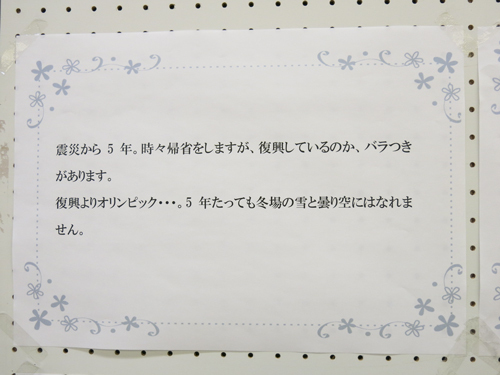 震災から 5 年。時々帰省をしますが、復興しているのか、バラつき
があります。
復興よりオリンピック・・・。5 年たっても冬場の雪と曇り空にはなれま
せん。